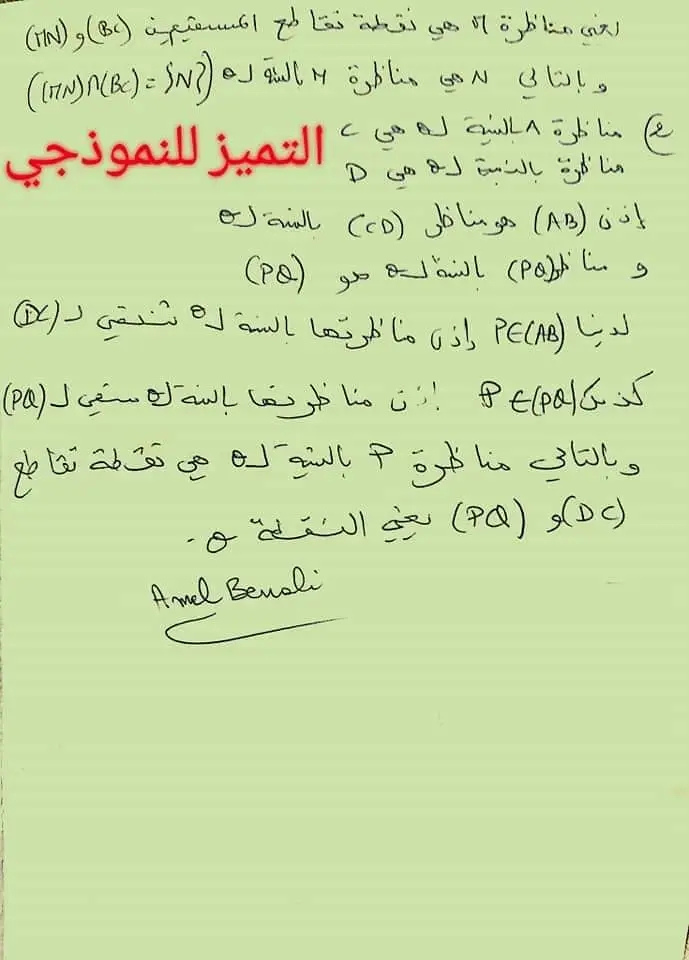 يعني مناظرة M هي نقطة تقاطع المستقيمين (BC) و (MN)
و بالتالي N هي مناظرة M بالنسبة لـ O ((MN)∩(BC) = {N})
مناظرة A بالنسبة لـ O هي C
التميز للنموذجي
مناظرة بالنسبة لـ O هي D
إذن (AB) هو مناظر (CD) بالنسبة لـ O
و مناظر (PQ) بالنسبة لـ O هو (PQ)
لدينا P∈(AB) إذن مناظرتها بالنسبة لـ O تنتمي لـ (DC)
كذلك P∈(PQ) إذن مناظرتها بالنسبة لـ O ستنتمي لـ (PQ)
و بالتالي مناظرة P بالنسبة لـ O هي نقطة تقاطع
(DC) و (PQ) يعني النقطة Q.
Amel Benali